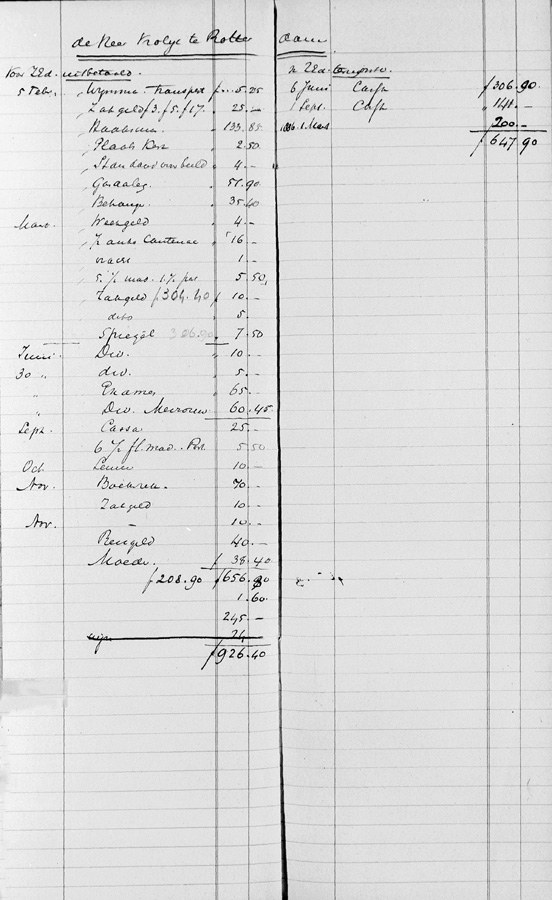 de Heer Krolyt te Rotter dam
Voor ZEd. uitbetaald.
5 Febr. Wymmer Transport f 5.25
Zakgeld f3. f5. f17. " 25.–
" 133.85
Plaats Kost " 2.50
" 4.–
" 57.90
Behang " 35.40
Maart Weekgeld " 4.–
Cantenac " 16.–
" 1.–
5 1/ mad. 1 1/ 5.50
Zakgeld f 304.40 f 10.–
dito " 5.–
Spiegel 306.90 " 7.50
Juni Div. " 10.–
30 " div. " 5.–
" Examen " 65.–
" Div. Mevrouw 60.45
Sept. Cassa 25.–
6 1/ fl. mad. Port 5.50
Oct. 10.–
Nov. Boeken 70.–
Zakgeld 10.–
Nov. – 10.–
Reisgeld 40.–
Moeder f 38.40
f 208.90 f 656.80
1.60
245.–
24
f 926.40
v ZEd. ontvangen.
6 Juni Cassa f 306.90
1 Sept. Cassa " 141.–
1886. 1 Maart 200.–
f 647.90